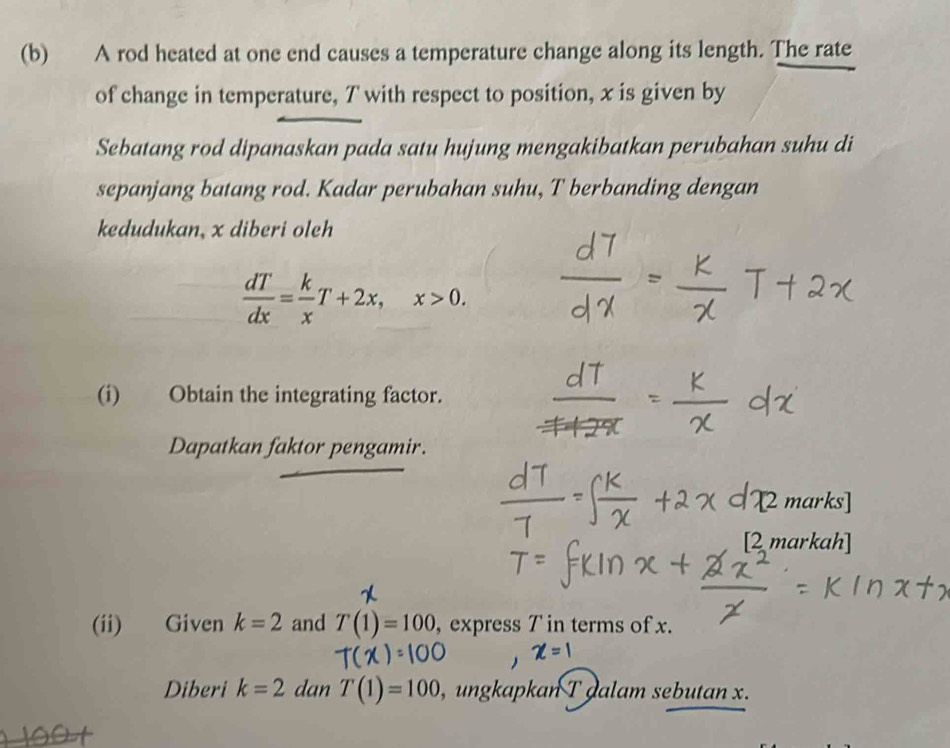 (b) A rod heated at one end causes a temperature change along its length. The rate
of change in temperature, T with respect to position, x is given by
Sebatang rod dipanaskan pada satu hujung mengakibatkan perubahan suhu di
sepanjang batang rod. Kadar perubahan suhu, T berbanding dengan
kedudukan, x diberi oleh
dT/dx = k/x T + 2x, x > 0.
dT/dx = K/x T + 2x
(i) Obtain the integrating factor.
dT/T+2x = K/x dx
Dapatkan faktor pengamir.
dT/T = ∫ K/x + 2x dx
[2 marks]
[2 markah]
T = K ln x + 2x²/2 = K ln x +
x
(ii) Given k = 2 and T(1) = 100, express T in terms of x.
T(x) = 100 , x = 1
Diberi k = 2 dan T(1) = 100, ungkapkan T dalam sebutan x.
100+